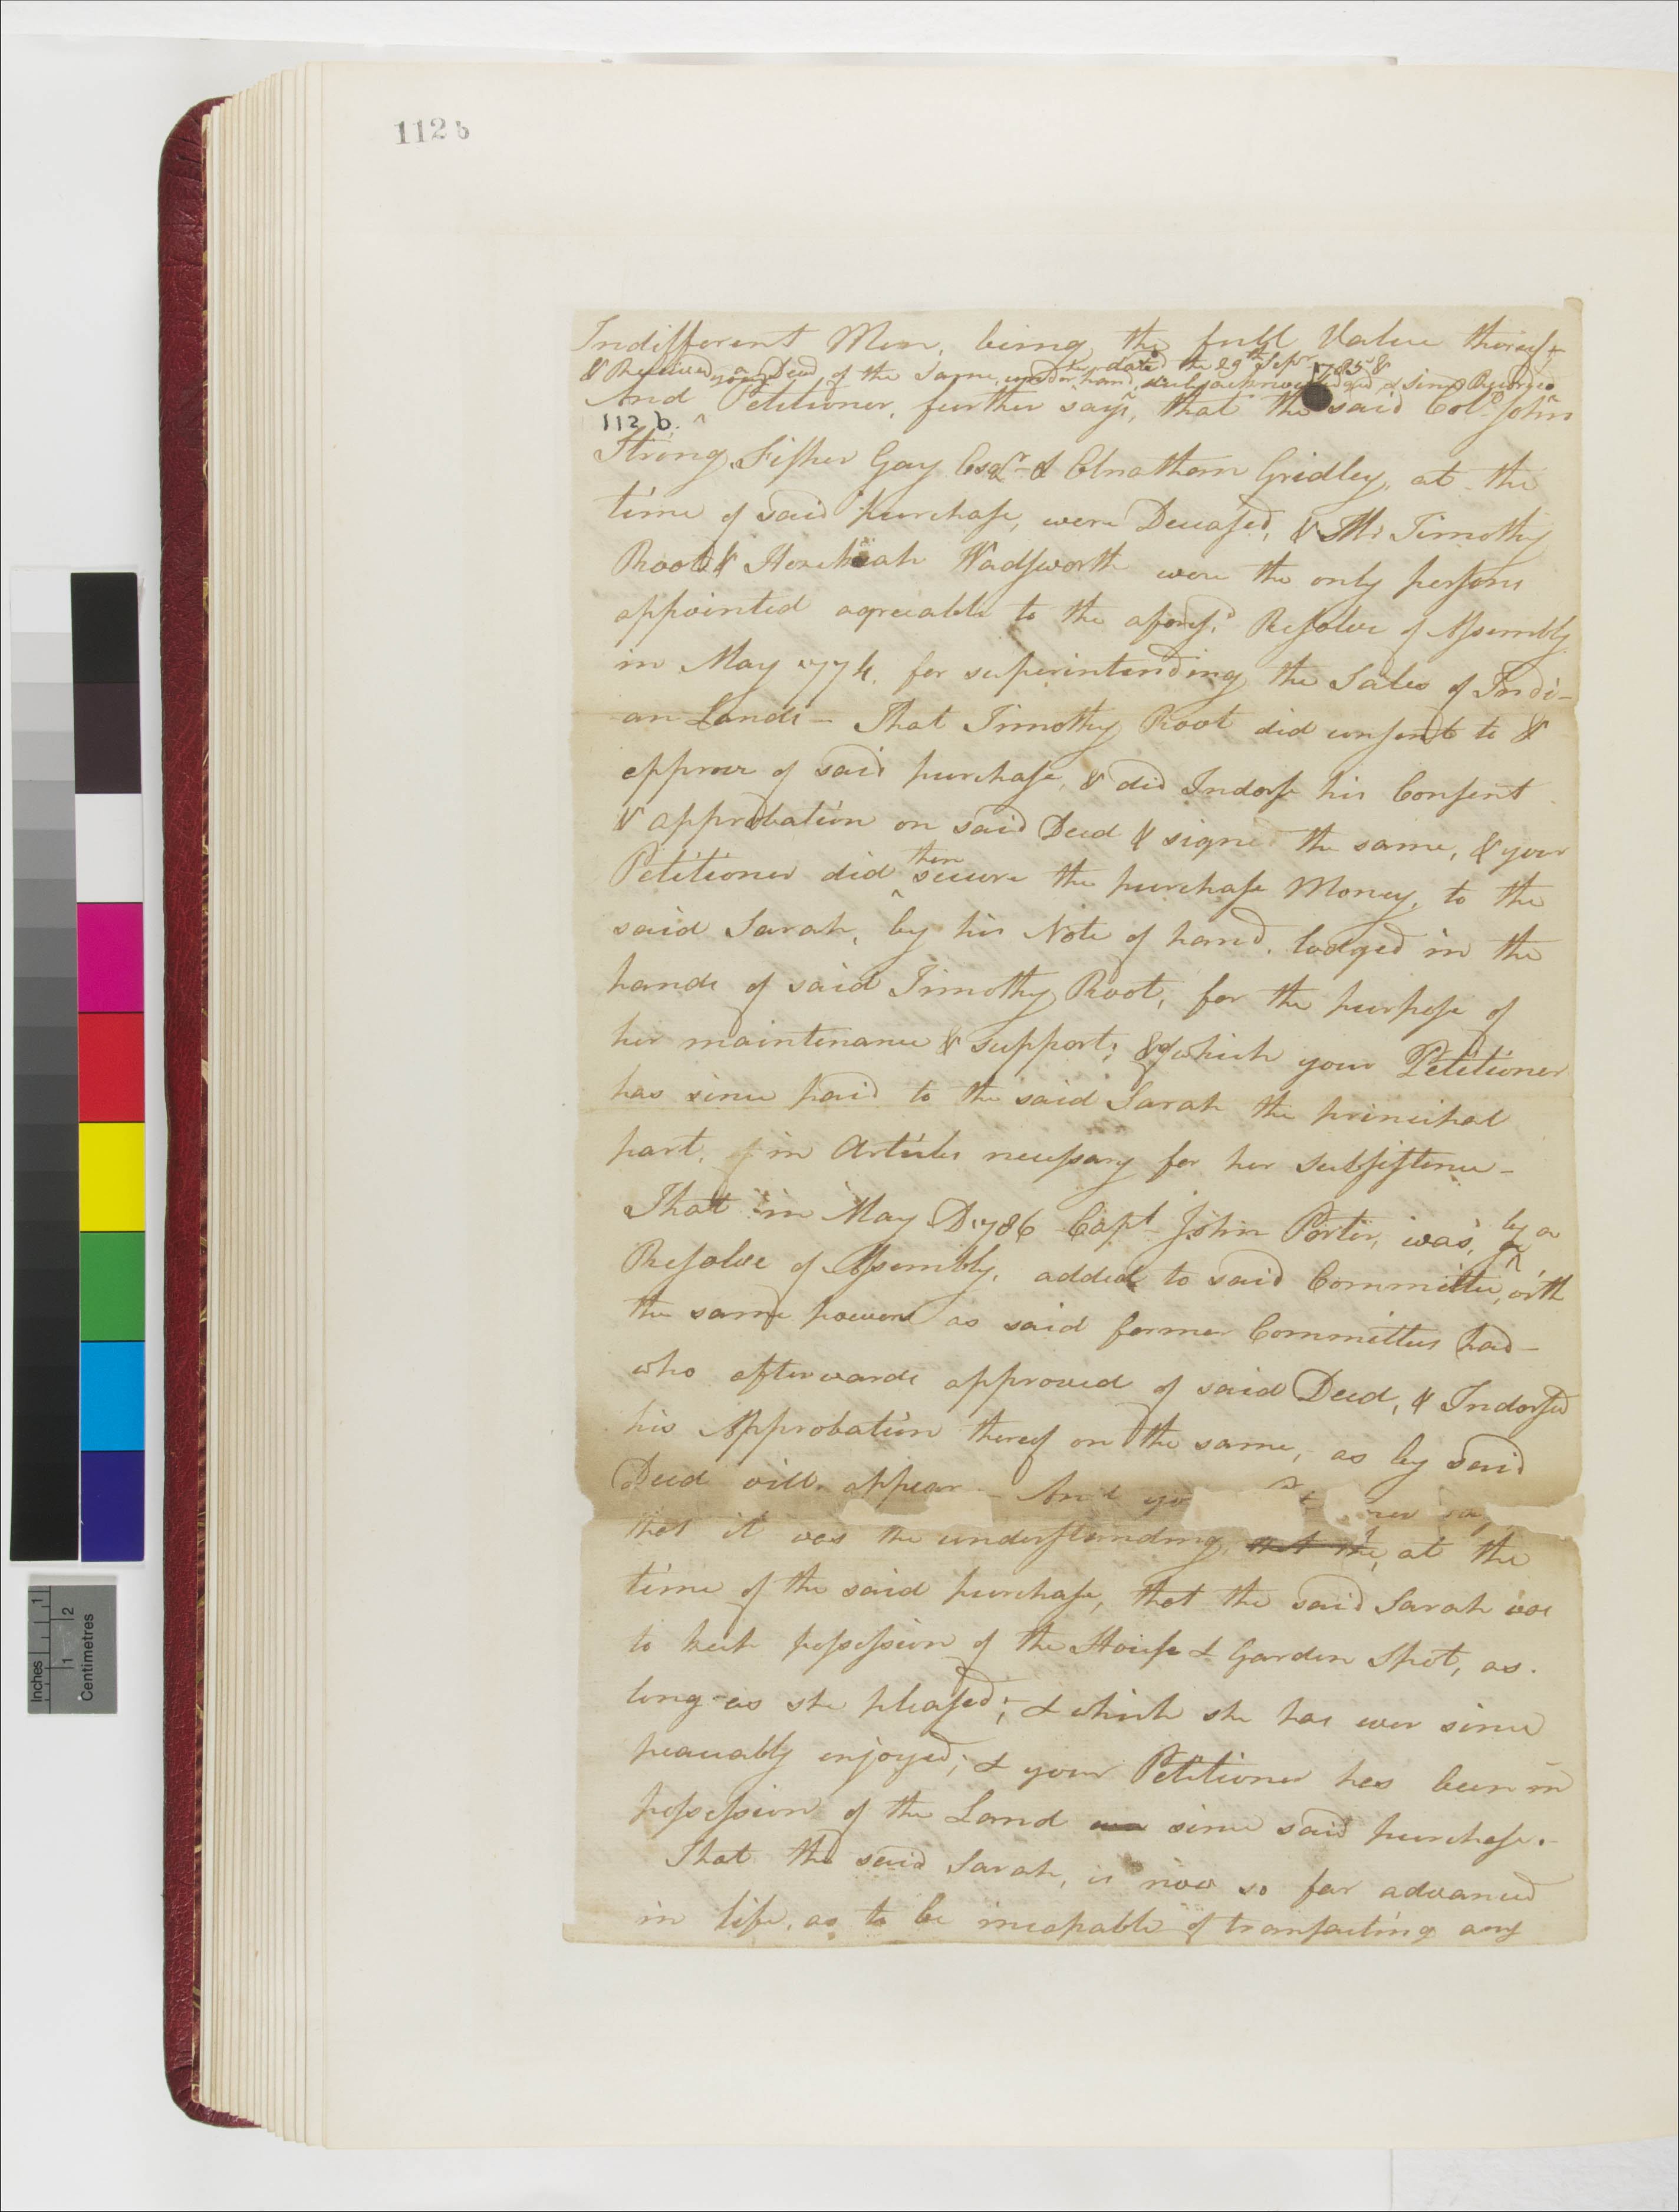 112 b
Indifferent Men, being the full Value thereof
& Received a Deed of the Same, under her hand, dated the 29th Sepr 1785 & acknowledged & since Recorded
And your Petitioner, further says, that the said Colo. John
112 b.
Strong, Fisher Gay Esqr. & Elnathan Gridley, at the
time of said purchase, were Deceased, & Mr Timothy
Root & Hezekiah Wadsworth were the only persons
appointed agreeable to the aforesd. Resolve of Assembly
in May 1774. for superintending the Sales of Indi-
an Lands – That Timothy Root did consent to &
approve of said purchase, & did Indorse his Consent
& approbation on said Deed & signed the same, & your
Petitioner did then secure the purchase Money, to the
said Sarah, by his Note of hand. lodged in the
hands of said Timothy Root, for the purpose of
her maintenance & support; & which your Petitioner
has since paid to the said Sarah the principal
part, in Articles necessary for her Subsistence –
That in May D. 1786 Capt. John Porter, was, by a
Resolve of Assembly, added to said Committee, with
the same powers as said former Committees had –
who afterwards approved of said Deed, & Indorsed
his Approbation thereof on the same, as by said
Deed will appear – And
that it was the understanding, that the, at the
time of the said purchase, that the said Sarah was
to keep possession of the House & Garden Spot, as
long as she pleased; & which she has ever since
peaceably enjoyed; & your Petitioner has been in
possession of the Land since said purchase. –
That the said Sarah, is now so far advanced
in life, as to be incapable of transacting any
Inches
1
1
2
Centimetres